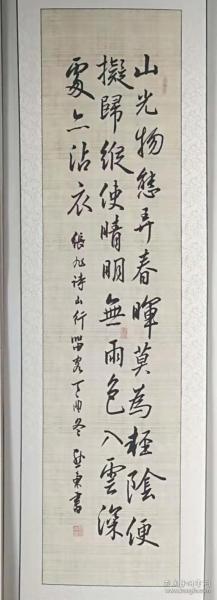 山光物態弄春暉莫為輕陰便
擬歸縱使晴明無雨色入雲深
處亦沾衣 張旭诗山行留客丁酉冬